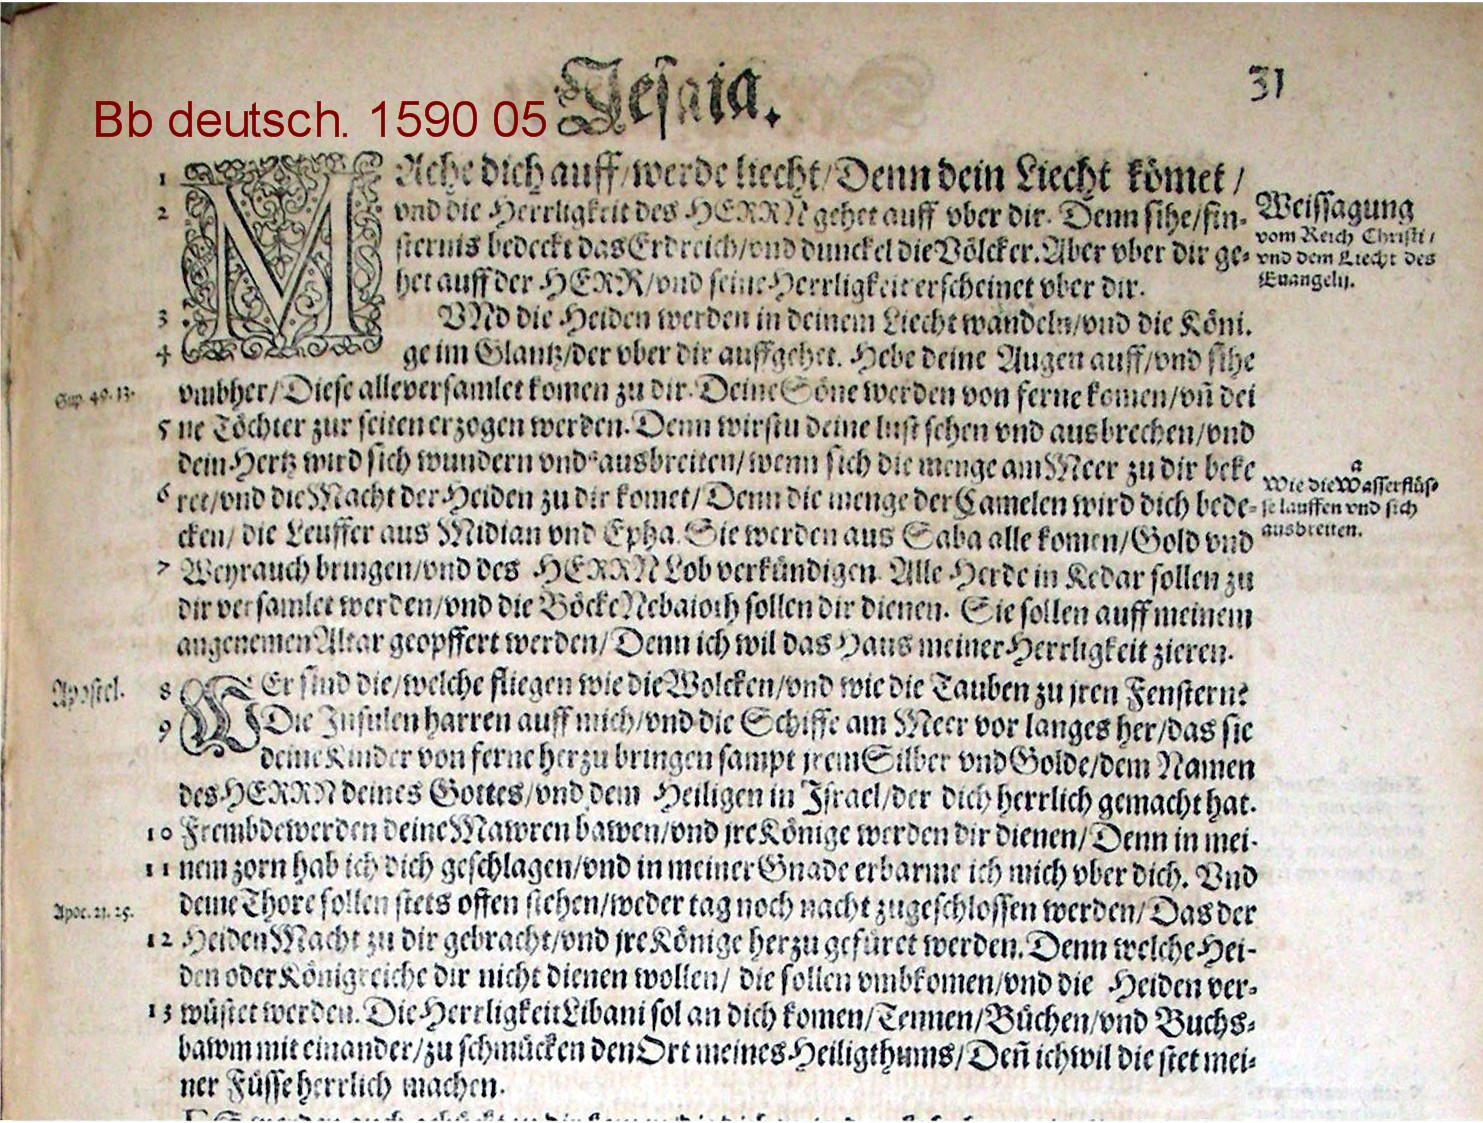 Jesaia.
31
Bb deutsch. 1590 05
1 MAche dich auff/werde liecht/Denn dein Liecht kömet/
2 vnd die Herrligkeit des HERRN gehet auff vber dir. Denn sihe/fin-
sternis bedeckt das Erdreich/vnd dunckel die Völcker. Aber vber dir ge-
het auff der HERR/vnd seine Herrligkeit erscheinet vber dir.
Weissagung
vom Reich Christi/
vnd dem Liecht des
Euangelij.
3 VNd die Heiden werden in deinem Liecht wandeln/vnd die Köni.
4 ge im Glantz/der vber dir auffgehet. Hebe deine Augen auff/vnd sihe
vmbher/Diese alle versamlet komen zu dir. Deine Söne werden von ferne komen/vñ dei
5 ne Töchter zur seiten erzogen werden. Denn wirstu deine lust sehen vnd ausbrechen/vnd
dein Hertz wird sich wundern vnd ausbreiten/wenn sich die menge am Meer zu dir beke
6 ret/vnd die Macht der Heiden zu dir komet/Denn die menge der Camelen wird dich bede-
cken/die Leuffer aus Midian vnd Epha. Sie werden aus Saba alle komen/Gold vnd
a
Wie die Wasserflüs-
se lauffen vnd sich
ausbreiten.
7 Weyrauch bringen/vnd des HERRN Lob verkündigen. Alle Herde in Kedar sollen zu
dir versamlet werden/vnd die Böcke Nebaioth sollen dir dienen. Sie sollen auff meinem
angenemen Altar geopffert werden/Denn ich wil das Haus meiner Herrligkeit zieren.
Apostel.
8 WEr sind die/welche fliegen wie die Wolcken/vnd wie die Tauben zu jren Fenstern?
9 Die Insulen harren auff mich/vnd die Schiffe am Meer vor langes her/das sie
deine Kinder von ferne herzu bringen sampt jrem Silber vnd Golde/dem Namen
des HERRN deines Gottes/vnd dem Heiligen in Jsrael/der dich herrlich gemacht hat.
10 Frembde werden deine Mawren bawen/vnd jre Könige werden dir dienen/Denn in mei-
11 nem zorn hab ich dich geschlagen/vnd in meiner Gnade erbarme ich mich vber dich. Vnd
Apoc. 21. 25.
deine Thore sollen stets offen stehen/weder tag noch nacht zugeschlossen werden/Das der
12 Heiden Macht zu dir gebracht/vnd jre Könige herzu gefüret werden. Denn welche Hei-
den oder Königreiche dir nicht dienen wollen/ die sollen vmbkomen/vnd die Heiden ver-
13 wüstet werden. Die Herrligkeit Libani sol an dich komen/Tennen/Büchen/vnd Buchs-
bawm mit einander/zu schmücken den Ort meines Heiligthums/Deñ ich wil die stet mei-
ner Füsse herrlich machen.